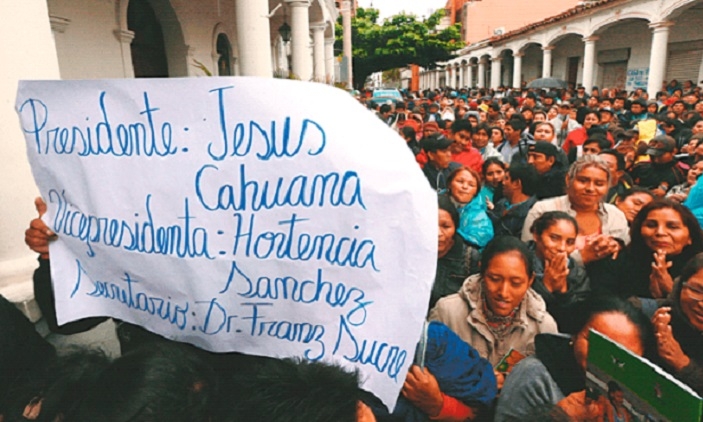 Presidente: Jesus
Cahuana
Vicepresidenta: Hortencia
Sanchez
Secretario: Dr. Franz Sucre